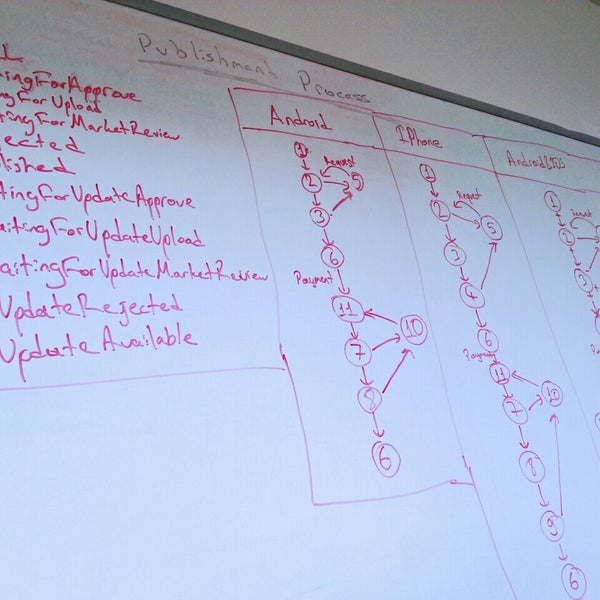 Publishment Process
L
ingForApprove
ngForUpload
tingForMarketReview
jected
lished
tingForUpdateApprove
aitingForUpdateUpload
aitingForUpdateMarketReview
UpdateRejected
UpdateAvailable
Android
1
2
Request
5
3
6
Payment
11
10
7
8
6
IPhone
1
2
Request
5
3
4
6
Payment
11
10
7
8
9
6
Android&IOS
1
2
Request
3